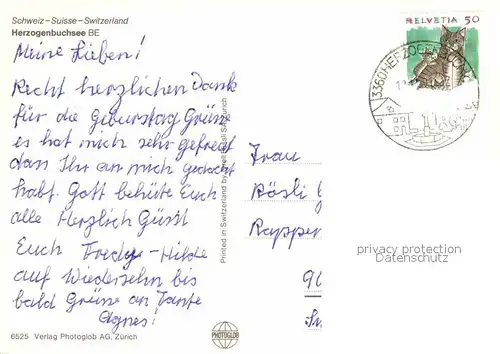 Schweiz – Suisse – Switzerland
Herzogenbuchsee BE
HELVETIA 50
3360 HERZOGENBUCHSEE
Meine Lieben!
Recht herzlichen Dank
für die Geburstag Grüsse
es hat mich sehr gefreut
dass Ihr an mich gedacht
habt. Gott behüte Euch
alle Herzlich Güsst
Euch Fredy - Hilde
auf Wiedersehn bis
bald Grüsse an Tante
Agnes!
Frau
Rösli
Rapper
Printed in Switzerland by
privacy protection
Datenschutz
PHOTOGLOB
6525 Verlag Photoglob AG, Zürich